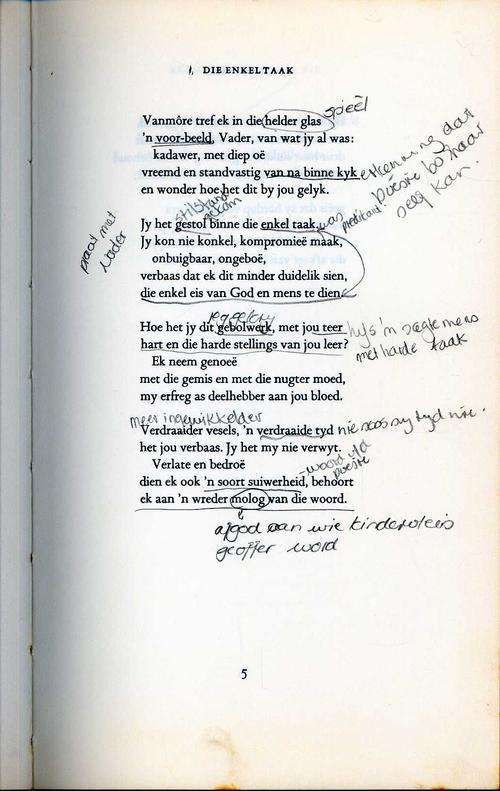 1. DIE ENKELTAAK
Vanmôre tref ek in die helder glas
spieël
'n voor-beeld, Vader, van wat jy al was:
kadawer, met diep oë
vreemd en standvastig van na binne kyk
en wonder hoe het dit by jou gelyk.
erkenning dat
poësie bo haar
self kan.
stilstand
Jy het gestol binne die enkel taak,
was
predikant
Jy kon nie konkel, kompromieë maak,
praat met
vader
onbuigbaar, ongeboë,
verbaas dat ek dit minder duidelik sien,
die enkel eis van God en mens te dien.
Hoe het jy dit gebolwerk, met jou teer
hart en die harde stellings van jou leer?
hy's 'n sagte mens
met harde taak
Ek neem genoeë
met die gemis en met die nugter moed,
my erfreg as deelhebber aan jou bloed.
meer ingewikkelder
Verdraaider vesels, 'n verdraaide tyd
nie soos sy tyd nie.
het jou verbaas. Jy het my nie verwyt.
Verlate en bedroë
- woord
poësie
dien ek ook 'n soort suiwerheid, behoort
ek aan 'n wreder molog van die woord.
afgod aan wie kindervleis
geoffer word
5